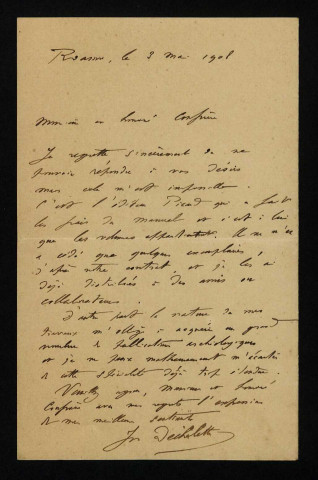 Roanne, le 3 mai 1908
Monsieur et honoré Confrère
Je regrette sincèrement de ne
pouvoir répondre à vos désirs
mais cela m'est impossible.
C'est l'éditeur Picard qui a fait
les frais du manuel et c'est à lui
que les volumes appartiennent. Il ne m'en
a cédé que quelques exemplaires,
d'après notre contrat et je les ai
déjà distribués à des amis ou
collaborateurs.
D'autre part la nature de mes
travaux m'oblige à acquérir un grand
nombre de publications archéologiques
et je ne puis malheureusement m'écarter
de cette spécialité déjà trop étendue.
Veuillez agréer, Monsieur et honoré
Confrère avec mes regrets l'expression
de mes meilleurs sentiments
Jos Déchelette